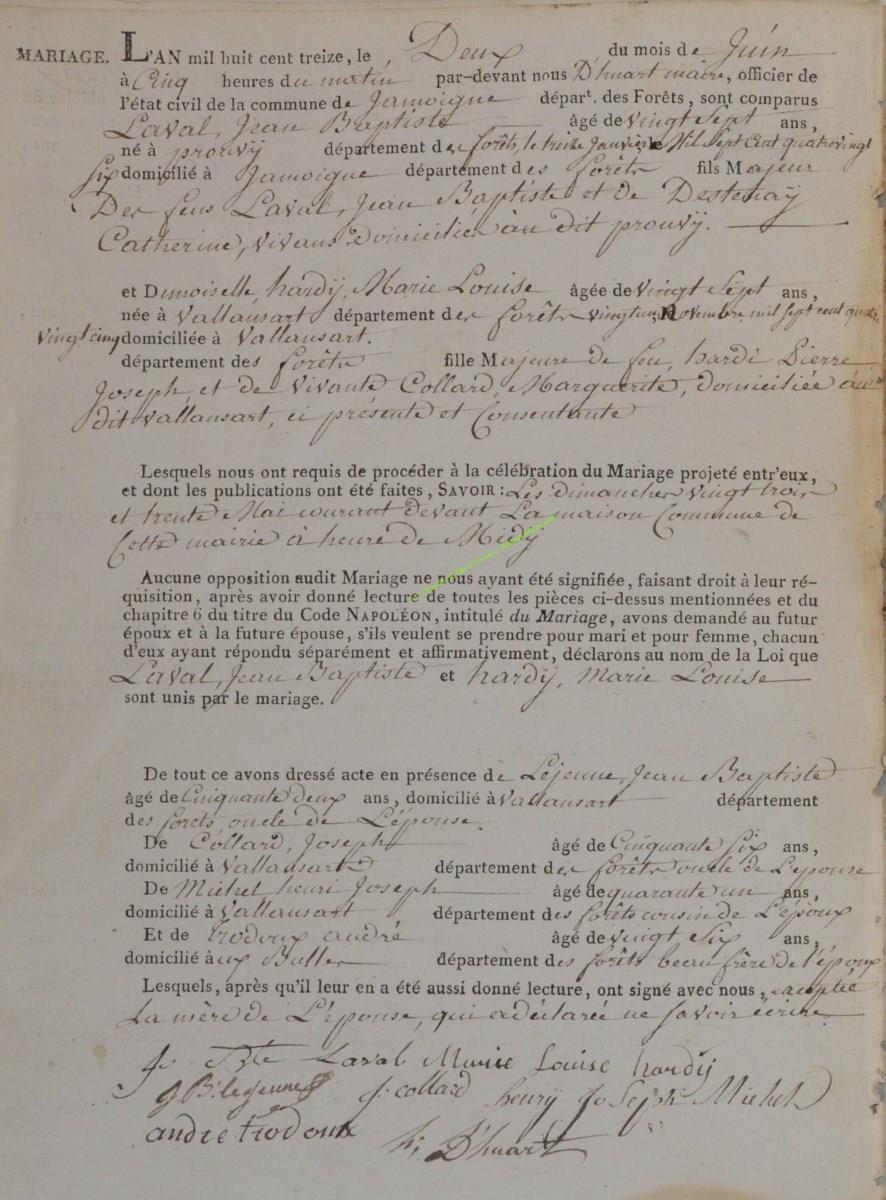 MARIAGE. L'AN mil huit cent treize, le Deux du mois de Juin
à Cinq heures du matin par-devant nous D'huart maire, officier de
l'état civil de la commune de Jamoigne départ. des Forêts, sont comparus
Laval, Jean Baptiste âgé de vingt Sept ans,
né à prouvÿ département des forêts, le treize Janvier Mil Sept Cent quatrevingt
Six domicilié à Jamoigne département des forêts fils Majeur
Des feus Laval, Jean Baptiste et de Destenaÿ
Catherine, vivans Domiciliés au dit prouvÿ.
et Dmoiselle, hardÿ, Marie Louise âgée de vingt Sept ans,
née à Vallansart département des forêts vingtun Novembre mil sept cent quatre
vingt cinq domiciliée à Vallansart.
département des forêts fille Majeure de feu, hardi Pierre
Joseph, et de Vivante Collard, Marguerite, domiciliée au
dit Vallansart, ci présente et Consentante
Lesquels nous ont requis de procéder à la célébration du Mariage projeté entr'eux,
et dont les publications ont été faites, SAVOIR : Les dimanches vingt trois
et trente Mai courant devant La maison Commune de
Cette mairie à heure de Midÿ
Aucune opposition audit Mariage ne nous ayant été signifiée, faisant droit à leur ré-
quisition, après avoir donné lecture de toutes les pièces ci-dessus mentionnées et du
chapitre 6 du titre du Code NAPOLÉON, intitulé du Mariage, avons demandé au futur
époux et à la future épouse, s'ils veulent se prendre pour mari et pour femme, chacun
d'eux ayant répondu séparément et affirmativement, déclarons au nom de la Loi que
Laval, Jean Baptiste et hardÿ, Marie Louise
sont unis par le mariage.
De tout ce avons dressé acte en présence de Lejeune, Jean Baptiste
âgé de Cinquante deux ans, domicilié à Vallansart département
des forêts, oncle de L'épouse
De Collard, Joseph âgé de Cinquante Six ans,
domicilié à Vallansart département des forêts oncle de L'epouse
De Michel henri Joseph âgé de quarante un ans,
domicilié à Vallansart département des forêts cousin de L'époux
Et de trodoux andré âgé de vingt Six ans,
domicilié à ux Bulles département des forêts beau frère de l'époux
Lesquels, après qu'il leur en a été aussi donné lecture, ont signé avec nous, exceptée
La mère de L'épouse, qui a déclarée ne savoir écrire
J. Bte Laval Marie Louise hardÿ
J B: lejeune J: collard henrÿ Joseph Michel
andré trodoux h: D'huart